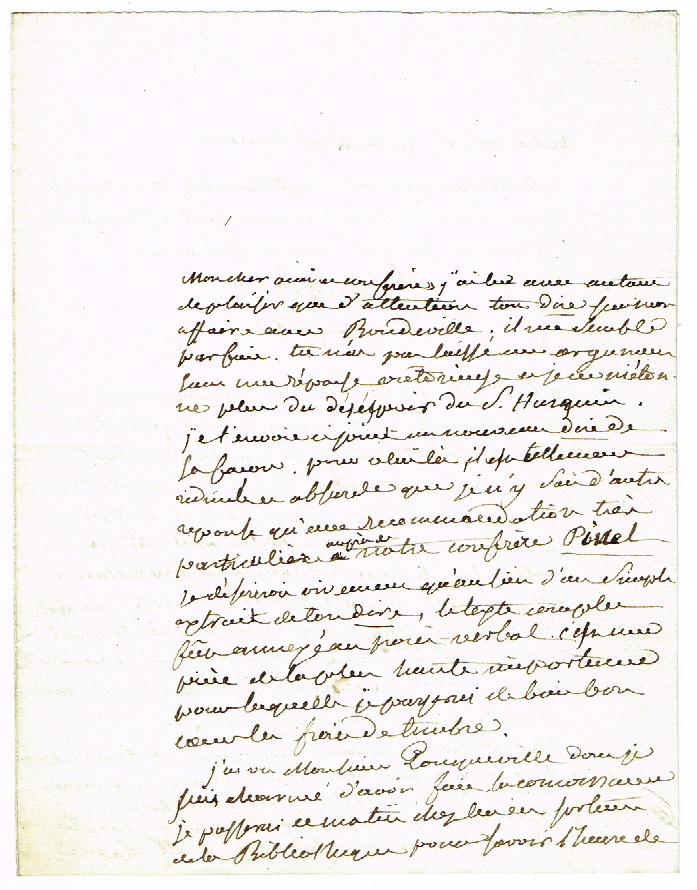 Mon cher ami et confrère, j'ai lu avec autant
de plaisir que d'attention ton dire sur mon
affaire avec Boudeville ; il me semble
parfait. tu n'as pas laissé un argument
sans une réponse victorieuse et je ne m'éton-
ne plus du désespoir du S.
je t'envoie ci joint un nouveau dire de
sa façon. pour celui là il est tellement
ridicule et absurde que je n'y sais d'autre
reponse qu'une recommandation très
particulière auprès de notre confrère Pinel
je désirerois vivement qu'au lieu d'un simple
extrait de ton dire, le texte complet
fût annexé au procès-verbal. c'est une
pièce de la plus haute importance
pour laquelle je payerai de bien bon
cœur les frais de timbre.
j'ai vu Monsieur Pouqueville dont je
suis charmé d'avoir fait la connoissance
je passerai ce matin chez lui en sortant
de la Bibliothèque pour savoir l'heure de